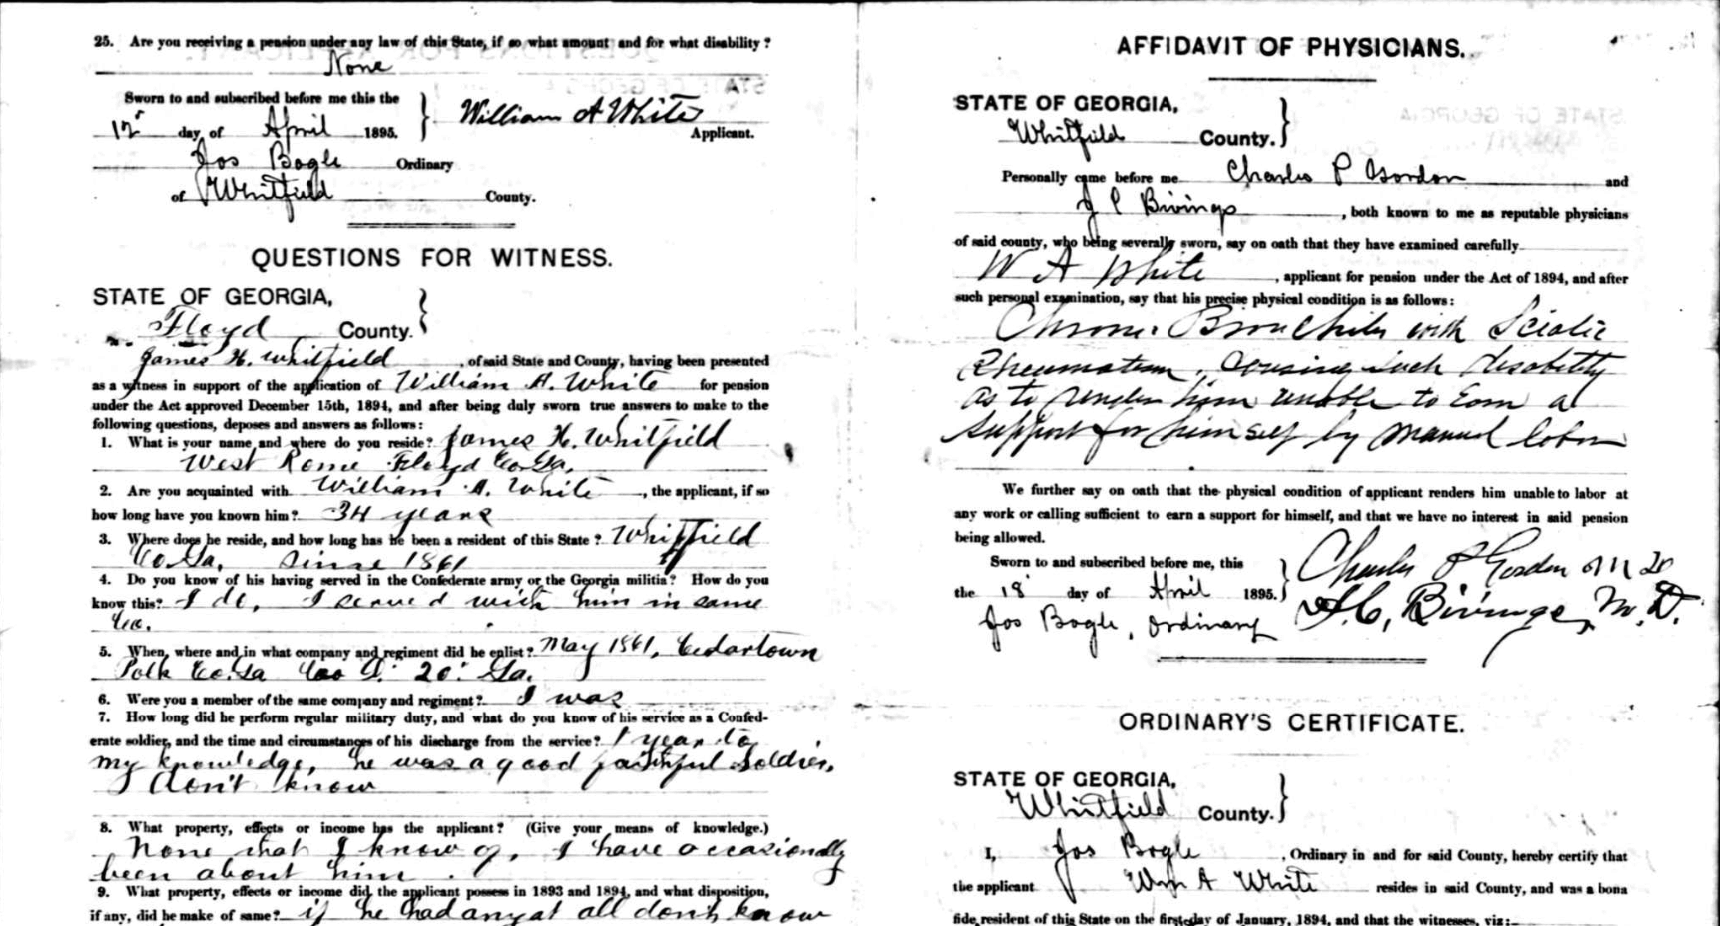 25. Are you receiving a pension under any law of this State, if so what amount and for what disability?
None
Sworn to and subscribed before me this the
12 day of April 1895.
William A White
Applicant.
Jos Bogle Ordinary
of Whitfield County.
QUESTIONS FOR WITNESS.
STATE OF GEORGIA,
Floyd County.
James H. Whitfield, of said State and County, having been presented
as a witness in support of the application of William A. White for pension
under the Act approved December 15th, 1894, and after being duly sworn true answers to make to the
following questions, deposes and answers as follows:
1. What is your name and where do you reside? James H. Whitfield
West Rome Floyd Co. Ga.
2. Are you acquainted with William A. White, the applicant, if so
how long have you known him? 34 years
3. Where does he reside, and how long has he been a resident of this State? Whitfield
Co. Ga. Since 1861
4. Do you know of his having served in the Confederate army or the Georgia militia? How do you
know this? I do, I served with him in same
Co.
5. When, where and in what company and regiment did he enlist? May 1861, Cedartown
Polk Co. Ga Co D. 20. Ga.
6. Were you a member of the same company and regiment? I was
7. How long did he perform regular military duty, and what do you know of his service as a Confed-
erate soldier, and the time and circumstances of his discharge from the service? 1 year to
my knowledge, he was a good faithful soldier,
I don't know
8. What property, effects or income has the applicant? (Give your means of knowledge.)
None that I know of, I have occasionally
been about him.
9. What property, effects or income did the applicant possess in 1893 and 1894, and what disposition,
if any, did he make of same? if he had any at all don't know
AFFIDAVIT OF PHYSICIANS.
STATE OF GEORGIA,
Whitfield County.
Personally came before me Charles P Gordon and
J C Bivings, both known to me as reputable physicians
of said county, who being severally sworn, say on oath that they have examined carefully
W A White, applicant for pension under the Act of 1894, and after
such personal examination, say that his precise physical condition is as follows:
Chronic Bronchitis with Sciatic
Rheumatism, causing such disability
as to render him unable to Earn a
support for himself by manual labor
We further say on oath that the physical condition of applicant renders him unable to labor at
any work or calling sufficient to earn a support for himself, and that we have no interest in said pension
being allowed.
Sworn to and subscribed before me, this
the 18 day of April 1895.
Charles P Gordon M D
J. C. Bivings, M. D.
Jos Bogle, Ordinary
ORDINARY'S CERTIFICATE.
STATE OF GEORGIA,
Whitfield County.
I, Jos Bogle, Ordinary in and for said County, hereby certify that
the applicant Wm A White resides in said County, and was a bona
fide resident of this State on the first day of January, 1894, and that the witnesses, viz: